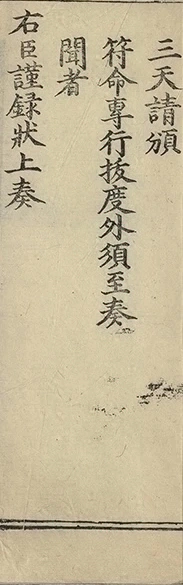 三天請頒
符命專行拔度外須至奏
聞者
右臣謹錄狀上奏